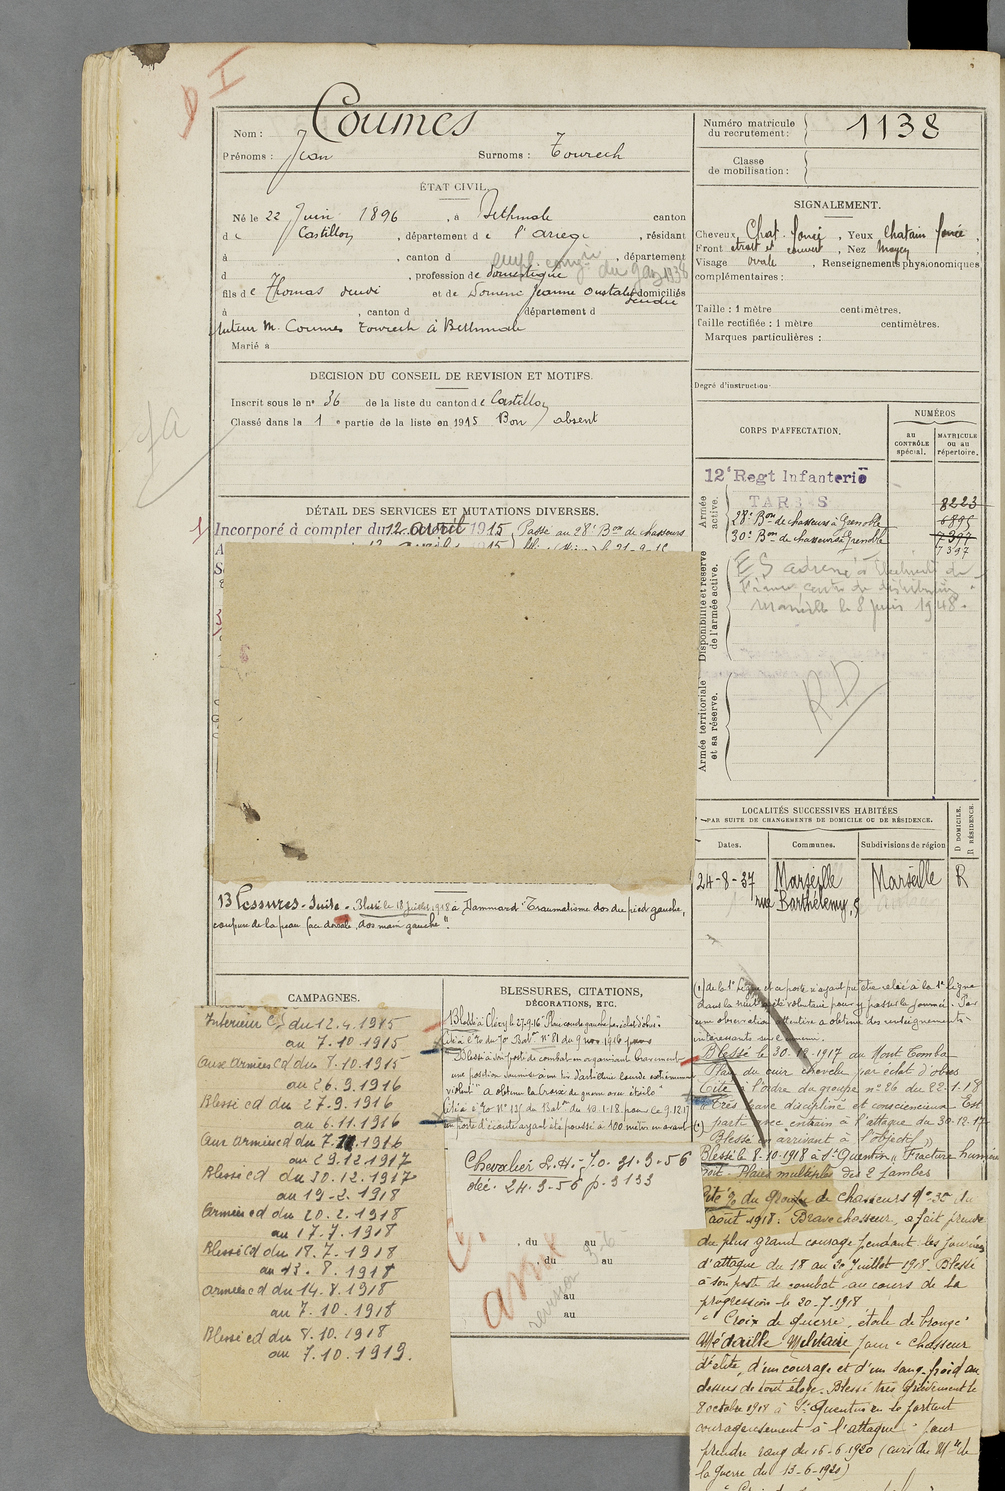 I
Nom : Coumes
Prénoms : Jean Surnoms : Tourech
ÉTAT CIVIL.
Né le 22 Juin 1896 , à Bethmale canton
de Castillon , département de l'Ariege , résidant
à , canton d , département
d , profession de domestique
fils de Thomas et de Domenc Jeanne domiciliés
à , canton d département d
tuteur M. Coumes Tourech à Bethmale
Marié à
DÉCISION DU CONSEIL DE REVISION ET MOTIFS.
Inscrit sous le n° 36 de la liste du canton de Castillon
Classé dans la 1e partie de la liste en 1915 Bon absent
DÉTAIL DES SERVICES ET MUTATIONS DIVERSES.
Incorporé à compter du 12 avril 1915 Passé au 28e Bon de chasseurs
Blessures - Suite - Blessé le 18 juillet 1918 à Dammard "Traumatisme dos du pied gauche,
coupure de la peau face dorsale, dos main gauche".
CAMPAGNES.
Intérieur CS du 12.4.1915
au 7.10.1915
aux Armées cd du 8.10.1915
au 26.9.1916
Blessé cd du 27.9.1916
au 6.11.1916
Aux armées cd du 7.11.1916
au 29.12.1917
Blessé cd du 30.12.1917
au 19-2.1918
Armées cd du 20.2.1918
au 17.7.1918
Blessé cd du 18.7.1918
au 13.8.1918
armées cd du 14.8.1918
au 7.10.1918
Blessé cd du 8.10.1918
au 7.10.1919.
BLESSURES, CITATIONS,
DÉCORATIONS, ETC.
Blessé à Cléry le 27-9-16 "Plaie cuisse gauche par éclat d'obus".
Cité à l'o. du 70 Bat. n° 81 du 9 nov. 1916 pour
Blessé à son poste de combat en organisant bravement
une position soumise à un tir d'artillerie lourde extrêmement
violent" a obtenu la Croix de guerre avec étoile
Cité à l'o. N° 135 du Baton du 10-1-18 pour le 9.12.17
au poste d'écoute ayant été poussé à 100 mètres en avant
Chevalier L.H. - J.O. 31-3-56
déc. 24.3-56 p. 3133
, du au
, du au
au
au
révision
Numéro matricule
du recrutement : 1138
Classe
de mobilisation :
SIGNALEMENT.
Cheveux Chat. foncé , Yeux Chatain foncée ,
Front étroit et couvert , Nez Moyen
Visage ovale , Renseignements physionomiques
complémentaires :
Taille : 1 mètre centimètres.
Taille rectifiée : 1 mètre centimètres.
Marques particulières :
Degré d'instruction
CORPS D'AFFECTATION.
NUMÉROS
AU CONTRÔLE spécial.
MATRICULE OU AU répertoire.
Armée active.
12e Regt Infanterie
TARBES 8223
28e Bon de chasseurs à Grenoble 6895
30e Bon de chasseurs à Grenoble 7397
7397
Disponibilité et réserve de l'armée active.
centre de distribution
Marseille le 8 juin 1948.
Armée territoriale et sa réserve.
RD
LOCALITÉS SUCCESSIVES HABITÉES
PAR SUITE DE CHANGEMENTS DE DOMICILE OU DE RÉSIDENCE.
D DOMICILE.
R RÉSIDENCE.
Dates. Communes. Subdivisions de région
24-8-37 Marseille Marseille R
rue Barthélemy, 8
(1) de la 1e Ligne et a porte n'ayant pu être relevé à la 1e ligne
dans la nuit, a été volontaire pour y passer la journée. Par
une observation attentive a obtenu des renseignements
intéressants sur l'ennemi.
Blessé le 30-12-1917 au Mont Tomba
Plaie du cuir chevelu par éclat d'obus
Cité à l'ordre du groupe n° 26 du 22-1-18
"Très brave discipliné et consciencieux Est
parti avec entrain à l'attaque du 30-12-17
Blessé en arrivant à l'objectif"
Blessé le 8-10-1918 à St Quentin "Fracture humérus
Plaies multiples des 2 jambes
Cité à l'o. du Groupe de Chasseurs N° 35 du
août 1918. Brave chasseur, a fait preuve
du plus grand courage pendant les journées
d'attaque du 18 au 20 Juillet 1918. Blessé
à son poste de combat au cours de la
progression le 20-7-1918
"Croix de Guerre, étoile de bronze"
Médaille Militaire pour "Chasseur
d'élite, d'un courage et d'un sang-froid au
dessus de tout éloge. Blessé très grièvement le
8 octobre 1918 à St Quentin en se portant
courageusement à l'attaque" pour
prendre rang du 16-6-1920 (avis du Mtre de
la Guerre du 13-6-1920)